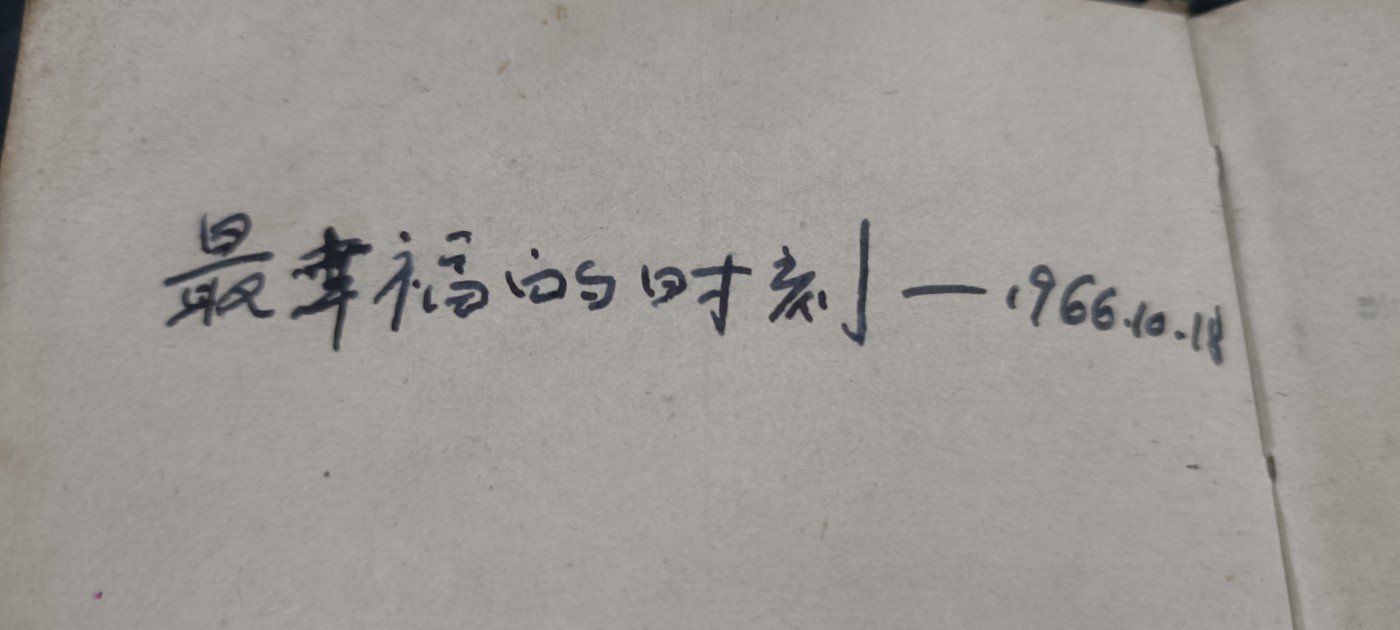 最幸福的时刻—1966.10.18